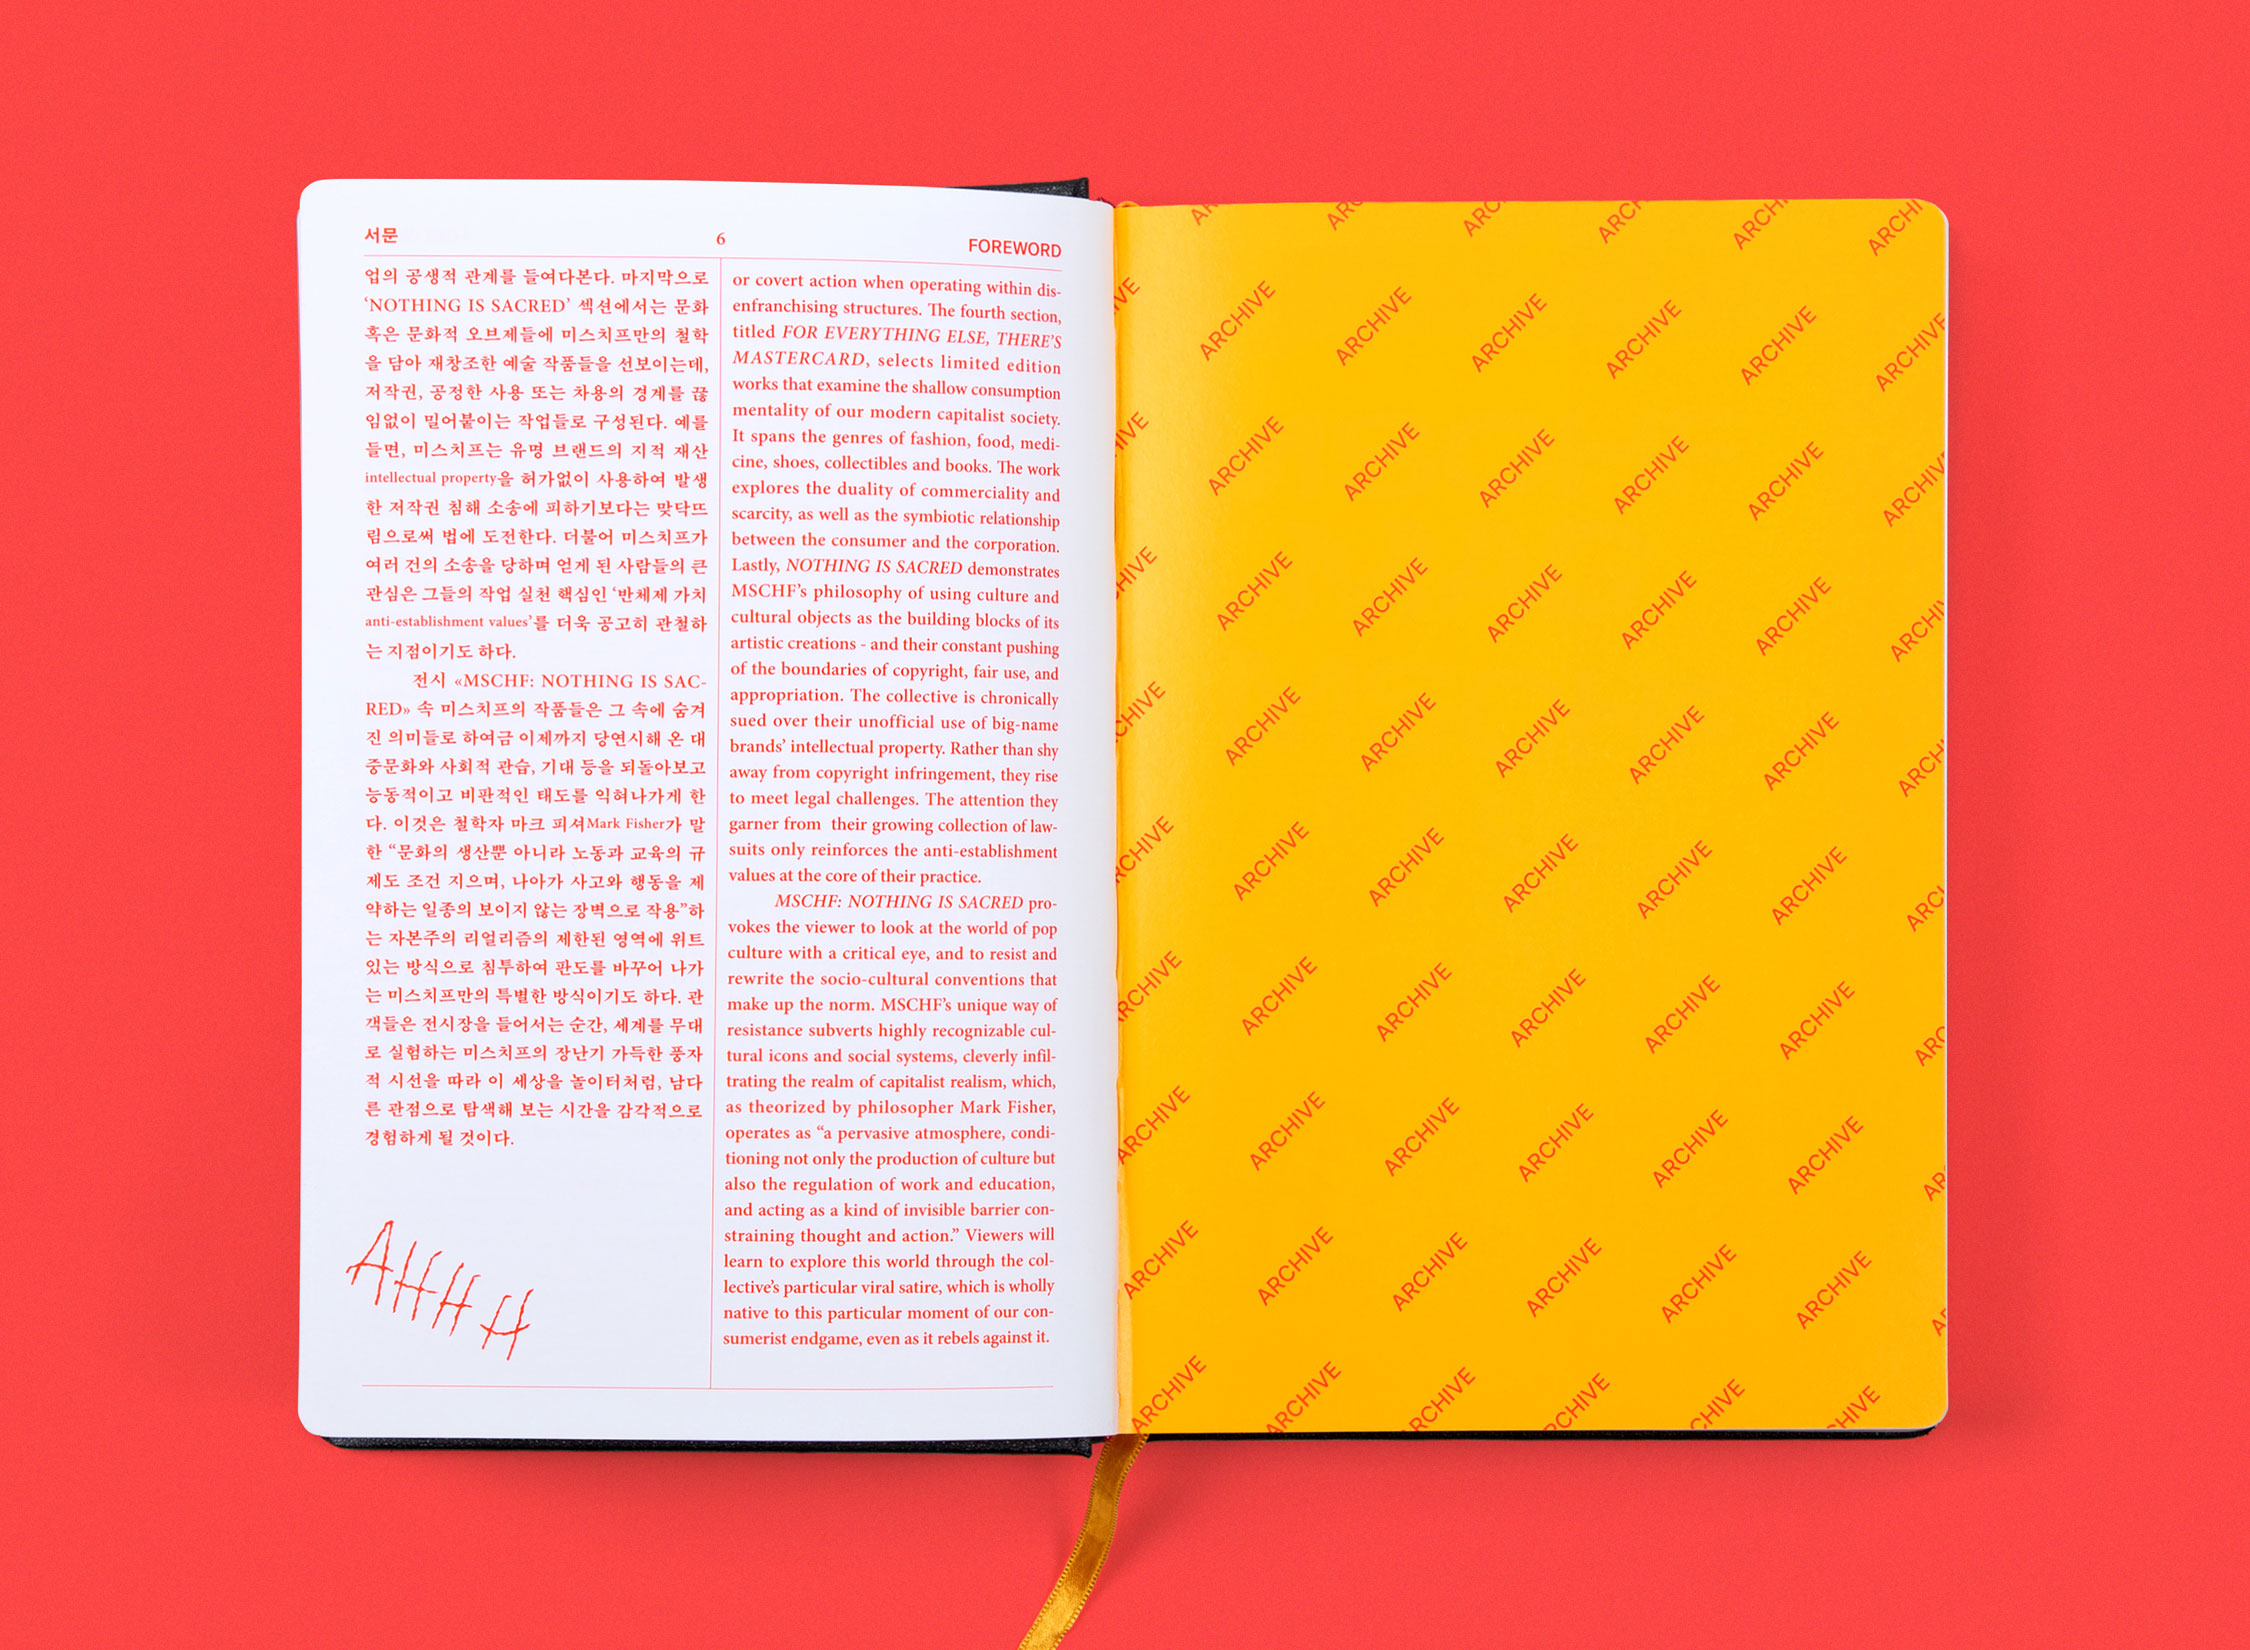 서문
6
FOREWORD
업의 공생적 관계를 들여다본다. 마지막으로
‘NOTHING IS SACRED’ 섹션에서는 문화
혹은 문화적 오브제들에 미스치프만의 철학
을 담아 재창조한 예술 작품들을 선보이는데,
저작권, 공정한 사용 또는 차용의 경계를 끊
임없이 밀어붙이는 작업들로 구성된다. 예를
들면, 미스치프는 유명 브랜드의 지적 재산
intellectual property을 허가없이 사용하여 발생
한 저작권 침해 소송에 피하기보다는 맞닥뜨
림으로써 법에 도전한다. 더불어 미스치프가
여러 건의 소송을 당하며 얻게 된 사람들의 큰
관심은 그들의 작업 실천 핵심인 ‘반체제 가치
anti-establishment values’를 더욱 공고히 관철하
는 지점이기도 하다.
전시 «MSCHF: NOTHING IS SAC-
RED» 속 미스치프의 작품들은 그 속에 숨겨
진 의미들로 하여금 이제까지 당연시해 온 대
중문화와 사회적 관습, 기대 등을 되돌아보고
능동적이고 비판적인 태도를 익혀나가게 한
다. 이것은 철학자 마크 피셔Mark Fisher가 말
한 “문화의 생산뿐 아니라 노동과 교육의 규
제도 조건 지으며, 나아가 사고와 행동을 제
약하는 일종의 보이지 않는 장벽으로 작용”하
는 자본주의 리얼리즘의 제한된 영역에 위트
있는 방식으로 침투하여 판도를 바꾸어 나가
는 미스치프만의 특별한 방식이기도 하다. 관
객들은 전시장을 들어서는 순간, 세계를 무대
로 실험하는 미스치프의 장난기 가득한 풍자
적 시선을 따라 이 세상을 놀이터처럼, 남다
른 관점으로 탐색해 보는 시간을 감각적으로
경험하게 될 것이다.
AHHH
or covert action when operating within dis-
enfranchising structures. The fourth section,
titled FOR EVERYTHING ELSE, THERE’S
MASTERCARD, selects limited edition
works that examine the shallow consumption
mentality of our modern capitalist society.
It spans the genres of fashion, food, medi-
cine, shoes, collectibles and books. The work
explores the duality of commerciality and
scarcity, as well as the symbiotic relationship
between the consumer and the corporation.
Lastly, NOTHING IS SACRED demonstrates
MSCHF’s philosophy of using culture and
cultural objects as the building blocks of its
artistic creations - and their constant pushing
of the boundaries of copyright, fair use, and
appropriation. The collective is chronically
sued over their unofficial use of big-name
brands’ intellectual property. Rather than shy
away from copyright infringement, they rise
to meet legal challenges. The attention they
garner from their growing collection of law-
suits only reinforces the anti-establishment
values at the core of their practice.
MSCHF: NOTHING IS SACRED pro-
vokes the viewer to look at the world of pop
culture with a critical eye, and to resist and
rewrite the socio-cultural conventions that
make up the norm. MSCHF’s unique way of
resistance subverts highly recognizable cul-
tural icons and social systems, cleverly infil-
trating the realm of capitalist realism, which,
as theorized by philosopher Mark Fisher,
operates as “a pervasive atmosphere, condi-
tioning not only the production of culture but
also the regulation of work and education,
and acting as a kind of invisible barrier con-
straining thought and action.” Viewers will
learn to explore this world through the col-
lective’s particular viral satire, which is wholly
native to this particular moment of our con-
sumerist endgame, even as it rebels against it.
ARCHIVE ARCHIVE ARCHIVE ARCHIVE ARCHIVE ARCHIVE
ARCHIVE ARCHIVE ARCHIVE ARCHIVE ARCHIVE ARCHIVE
ARCHIVE ARCHIVE ARCHIVE ARCHIVE ARCHIVE ARCHIVE
ARCHIVE ARCHIVE ARCHIVE ARCHIVE ARCHIVE ARCHIVE
ARCHIVE ARCHIVE ARCHIVE ARCHIVE ARCHIVE
ARCHIVE ARCHIVE ARCHIVE ARCHIVE ARCHIVE
ARCHIVE ARCHIVE ARCHIVE ARCHIVE ARCHIVE ARCHIVE
ARCHIVE ARCHIVE ARCHIVE ARCHIVE ARCHIVE ARCHIVE
ARCHIVE ARCHIVE ARCHIVE ARCHIVE